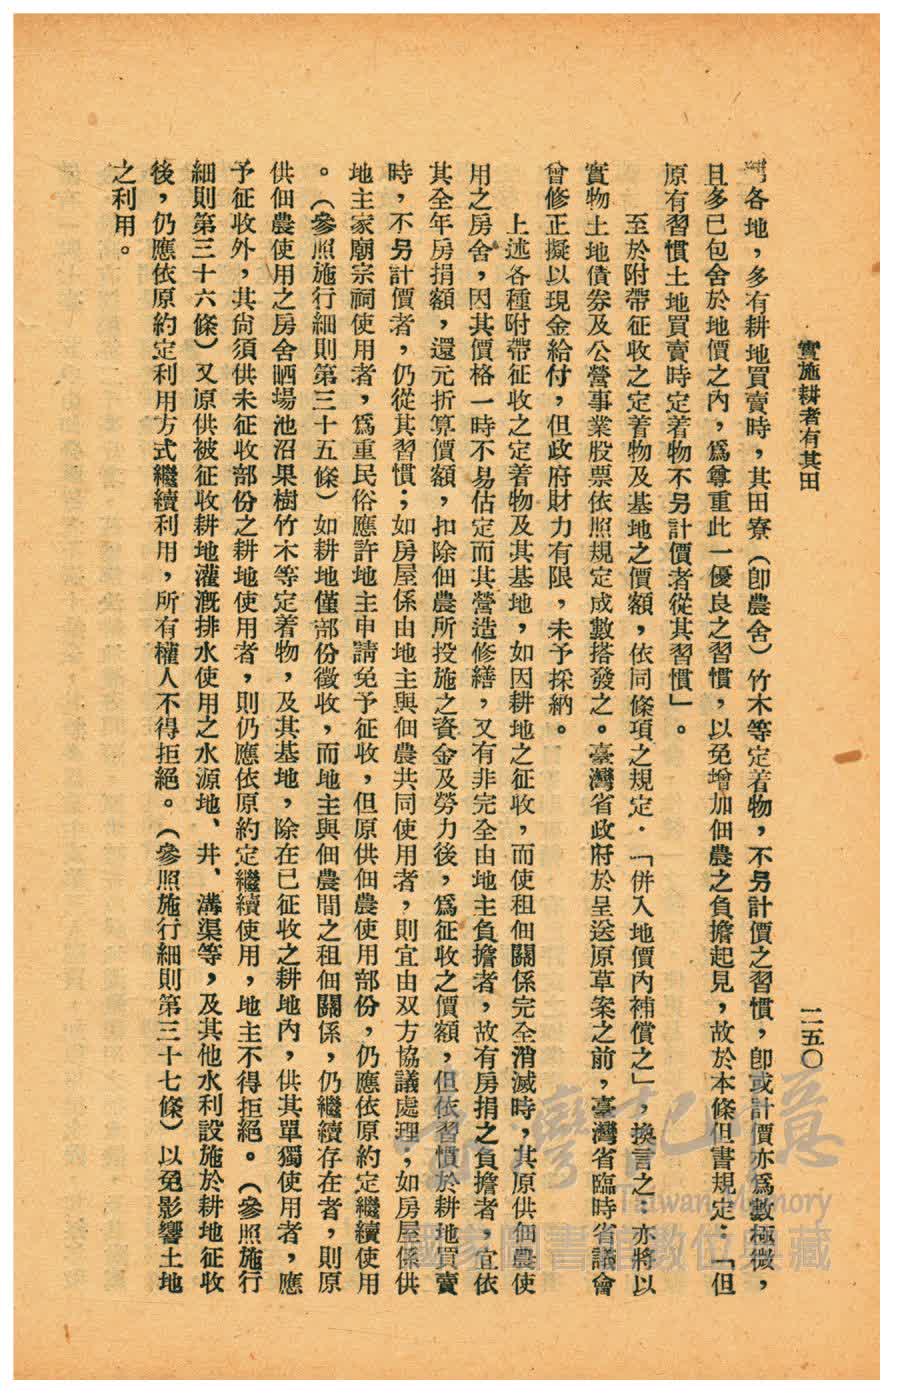 實施耕者有其田
二五〇
各地，多有耕地買賣時，其田寮（卽農舍）竹木等定着物，不另計價之習慣，卽或計價亦爲數極微，
且多已包含於地價之內，爲尊重此一優良之習慣，以免增加佃農之負擔起見，故於本條但書規定：「但
原有習慣土地買賣時定着物不另計價者從其習慣」。
至於附帶征收之定着物及基地之價額，依同條項之規定．「併入地價內補償之」，換言之：亦將以
實物土地債券及公營事業股票依照規定成數搭發之。臺灣省政府於呈送原草案之前，臺灣省臨時省議會
曾修正擬以現金給付，但政府財力有限，未予採納。
上述各種附帶征收之定着物及其基地，如因耕地之征收，而使租佃關係完全消滅時，其原供佃農使
用之房舍，因其價格一時不易估定而其營造修繕，又有非完全由地主負擔者，故有房捐之負擔者，宜依
其全年房捐額，還元折算價額，扣除佃農所投施之資金及勞力後，爲征收之價額，但依習慣於耕地買賣
時，不另計價者，仍從其習慣；如房屋係由地主與佃農共同使用者，則宜由双方協議處理；如房屋係供
地主家廟宗祠使用者，爲重民俗應許地主申請免予征收，但原供佃農使用部份，仍應依原約定繼續使用
。（參照施行細則第三十五條）如耕地僅部份徵收，而地主與佃農間之租佃關係，仍繼續存在者，則原
供佃農使用之房舍晒場池沼果樹竹木等定着物，及其基地，除在已征收之耕地內，供其單獨使用者，應
予征收外，其尙須供未征收部份之耕地使用者，則仍應依原約定繼續使用，地主不得拒絕。（參照施行
細則第三十六條）又原供被征收耕地灌漑排水使用之水源地、井、溝渠等，及其他水利設施於耕地征收
後，仍應依原約定利用方式繼續利用，所有權人不得拒絕。（參照施行細則第三十七條）以免影響土地
之利用。
臺灣記憶
Taiwan Memory
國家圖書館數位典藏